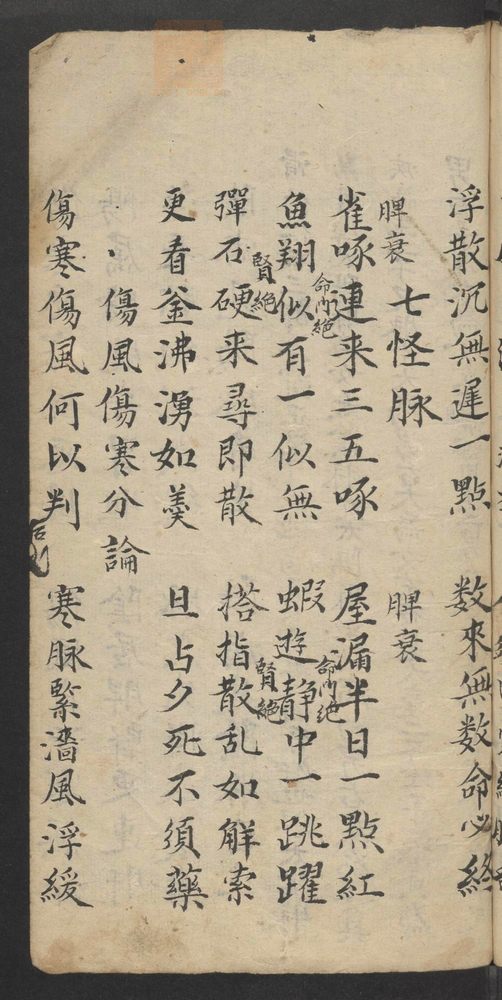 浮散沉無遲一點　數來無數命必終
七怪脉
脾衰　脾衰
雀啄連来三五啄　屋漏半日一點紅
命门絶　命门绝
魚翔似有一似無　蝦遊静中一跳躍
賢絶　賢絶
彈石硬来尋即散　搭指散乱如解索
更看釜沸湧如羹　旦占夕死不須藥
傷風傷寒分論
傷寒傷風何以判　寒脉緊濇風浮緩